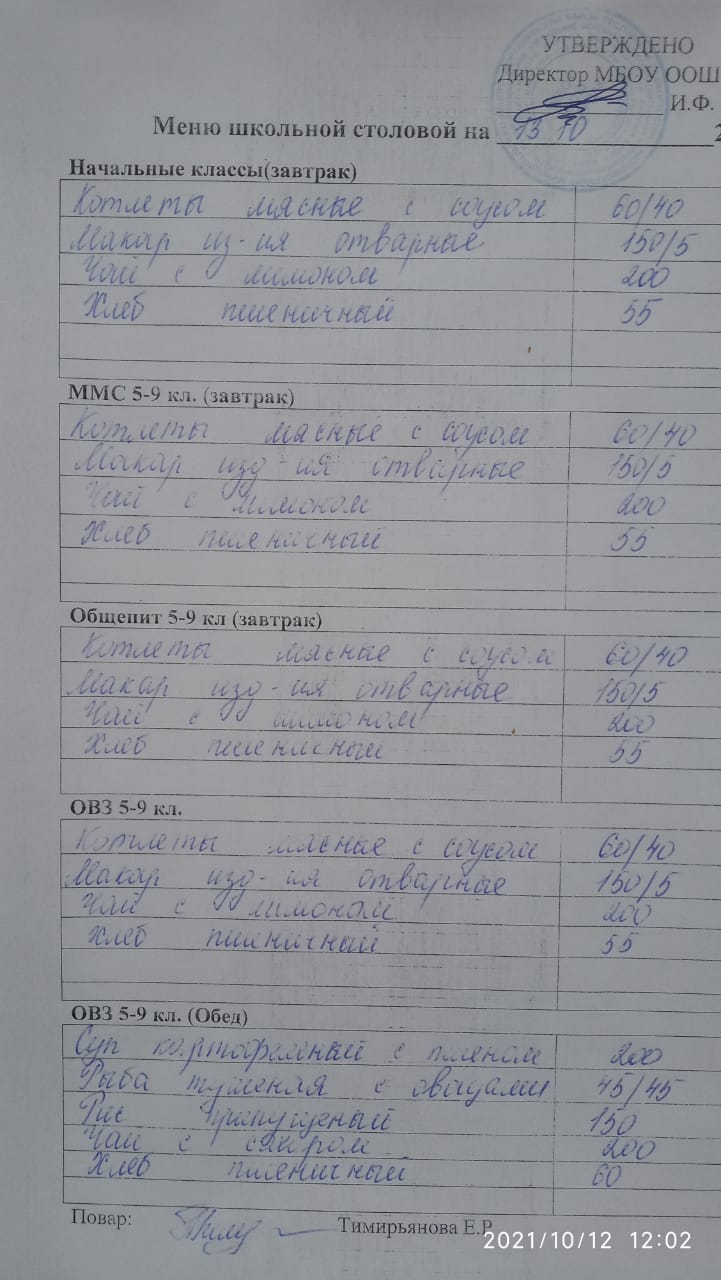 УТВЕРЖДЕНО
Директор МБОУ ООШ
И.Ф.
Меню школьной столовой на 13 10 2
Начальные классы(завтрак)
Котлеты мясные с соусом 60/40
Макар из-ия отварные 150/5
Чай с лимоном 200
Хлеб пшеничный 55
ММС 5-9 кл. (завтрак)
Котлеты мясные с соусом 60/40
Макар изд-ия отварные 150/5
Чай с лимоном 200
Хлеб пшеничный 55
Общепит 5-9 кл (завтрак)
Котлеты мясные с соусом 60/40
Макар изд-ия отварные 150/5
Чай с лимоном 200
Хлеб пшеничный 55
ОВЗ 5-9 кл.
Котлеты мясные с соусом 60/40
Макар изд-ия отварные 150/5
Чай с лимоном 200
Хлеб пшеничный 55
ОВЗ 5-9 кл. (Обед)
Суп картофельный с пшеном 200
Рыба тушеная с овощами 45/45
Рис припущеный 150
Чай с сахаром 200
Хлеб пшеничный 60
Повар: Тимирьянова Е.Р
2021/10/12 12:02